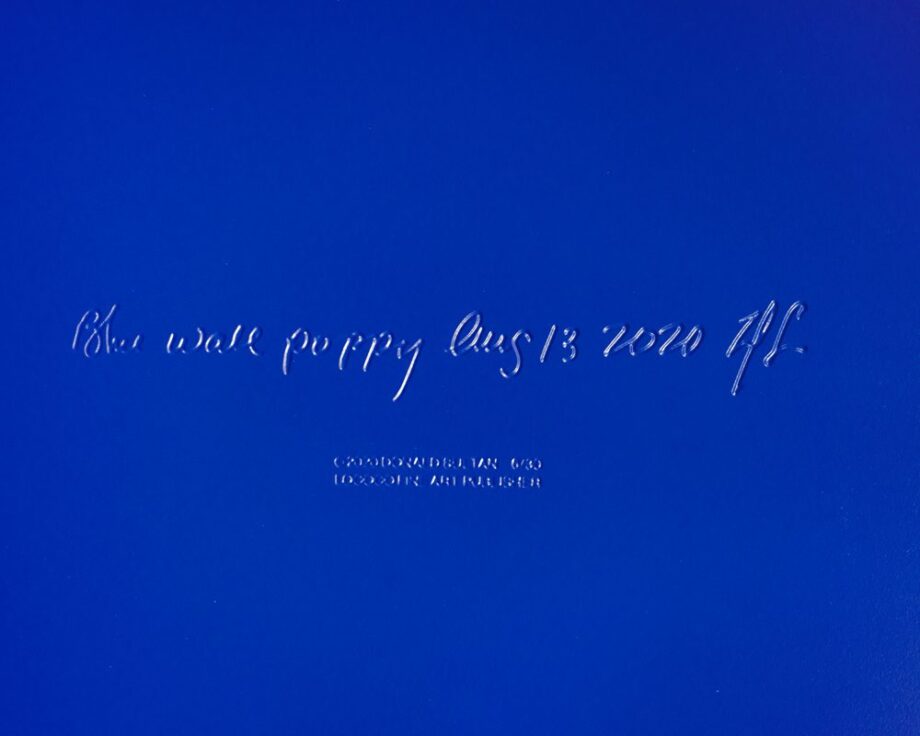 Blue wall poppy Aug 13 2020
©2020 DONALD SULTAN 6/30
LOCOCO FINE ART PUBLISHER